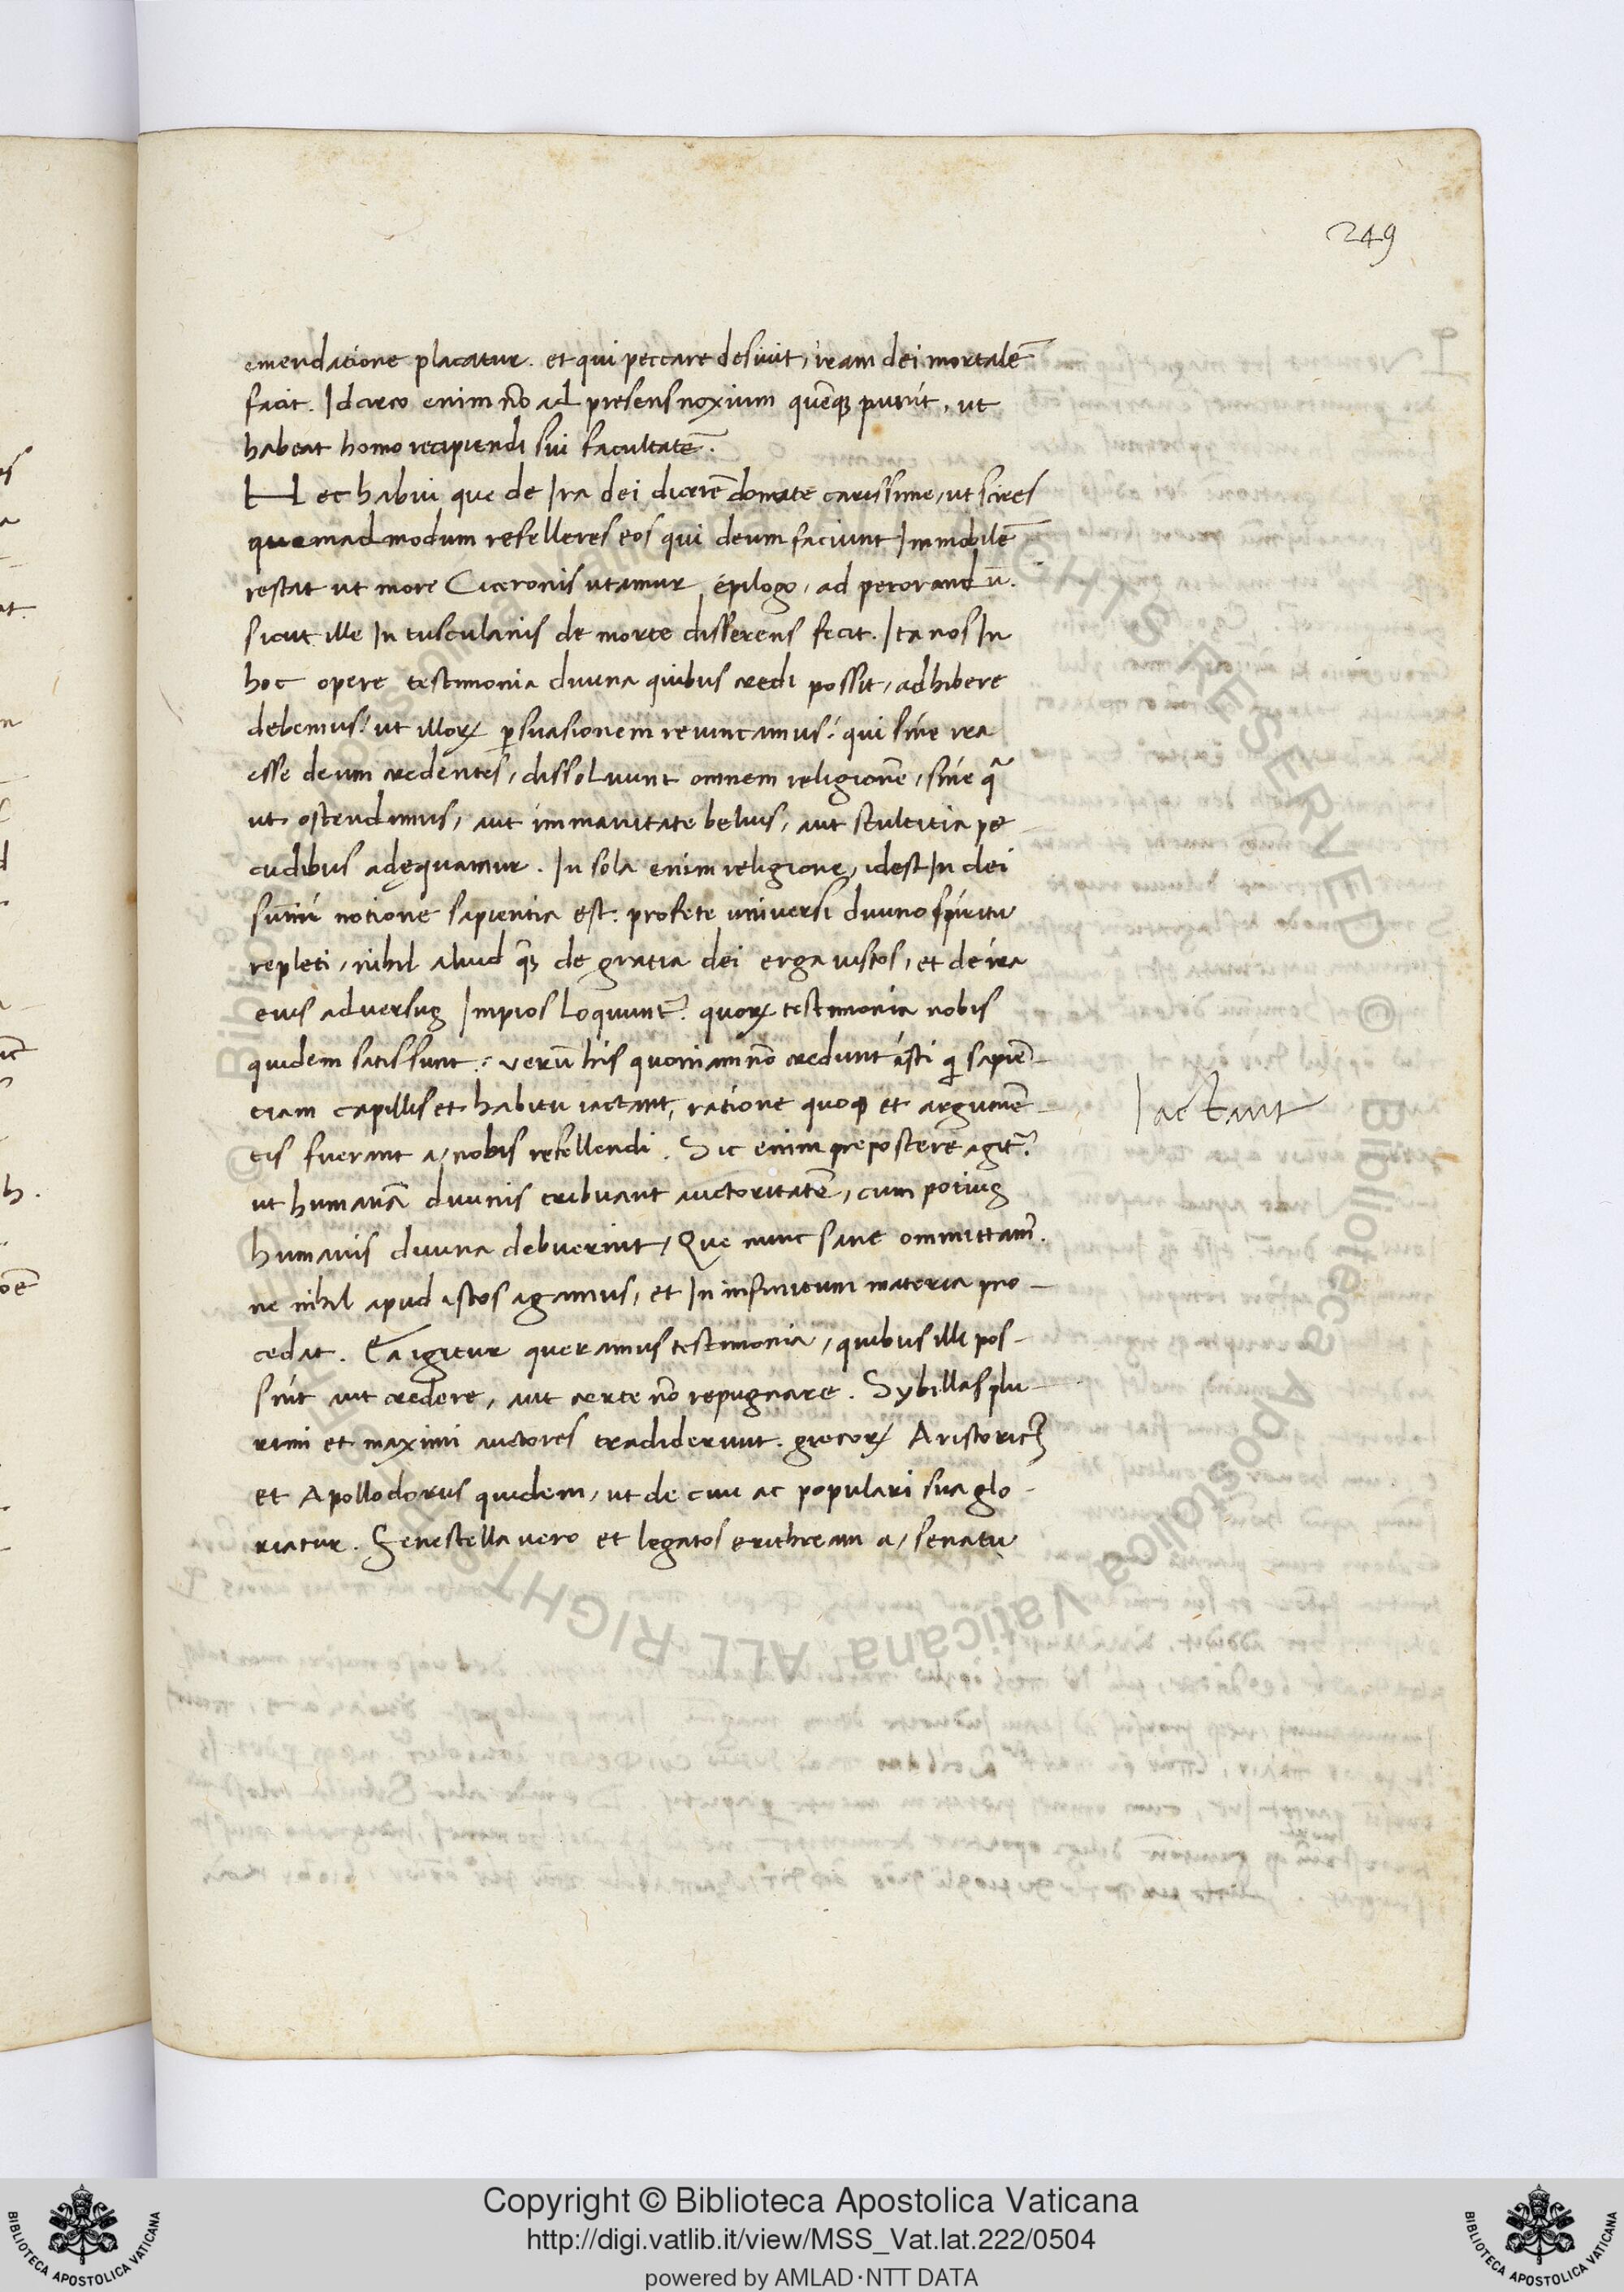 249
emendatione placatur. et qui peccare desinit, iram dei mortalẽ
facit. Idcirco enim nõ ad presens noxium quẽqȝ punit, ut
habeat homo recipiendi sui facultatẽ.
Hec habui que de Ira dei dicerẽ donate carissime, ut scires
quemadmodum refelleres eos qui deum faciunt Immobilẽ
restat ut more Ciceronis utamur épilogo, ad perorandū.
sicut ille In tusculanis de morte disserens fecit. Ita nos In
hoc opere testimonia divina quibus credi possit, adhibere
debemus: ut illoꝝ ꝑsuasionem revincamus: qui sine ira
esse deum credentes, dissolvunt omnem religionẽ, sine q̃
ut ostendimus, aut immanitate beluis, aut stultitia pe
cudibus adęquamur. In sola enim religione, idest In dei
sũmi notione sapientia est. profete universi divino spiritu
repleti, nihil aliud q̃ȝ de gratia dei erga iustos, et de ira
eius adversus Impios loquunt᷑. quoꝝ testimonia nobis
quidem satis sunt: verũ his quoniam nõ credunt isti q̇ sapiẽ-
tiam capillis et habitu iactant, ratione quoqꝫ et argumẽ-
tis fuerant a/nobis refellendi. Sic enim prepostere agit᷑.
Iactant
ut humanã divinis tribuant auctoritatẽ, cum potius
humanis divina debuerint, Que nunc sane ommittam᷒.
ne nihil apud istos agamus, et In infinitum materia pro-
cedat. Ea igitur queramus testimonia, quibus illi pos-
sint aut credere, aut certe nõ repugnare. Sybillas plu-
rimi et maximi auctores tradiderunt. grecoꝝ Aristoric᷒
et Apollodorus quidem, ut de civi ac populari sua glo-
riatur. Fenestella vero et legatos erithream a/senatu
Copyright © Biblioteca Apostolica Vaticana
http://digi.vatlib.it/view/MSS_Vat.lat.222/0504
powered by AMLAD·NTT DATA
BIBLIOTECA APOSTOLICA VATICANA
BIBLIOTECA APOSTOLICA VATICANA